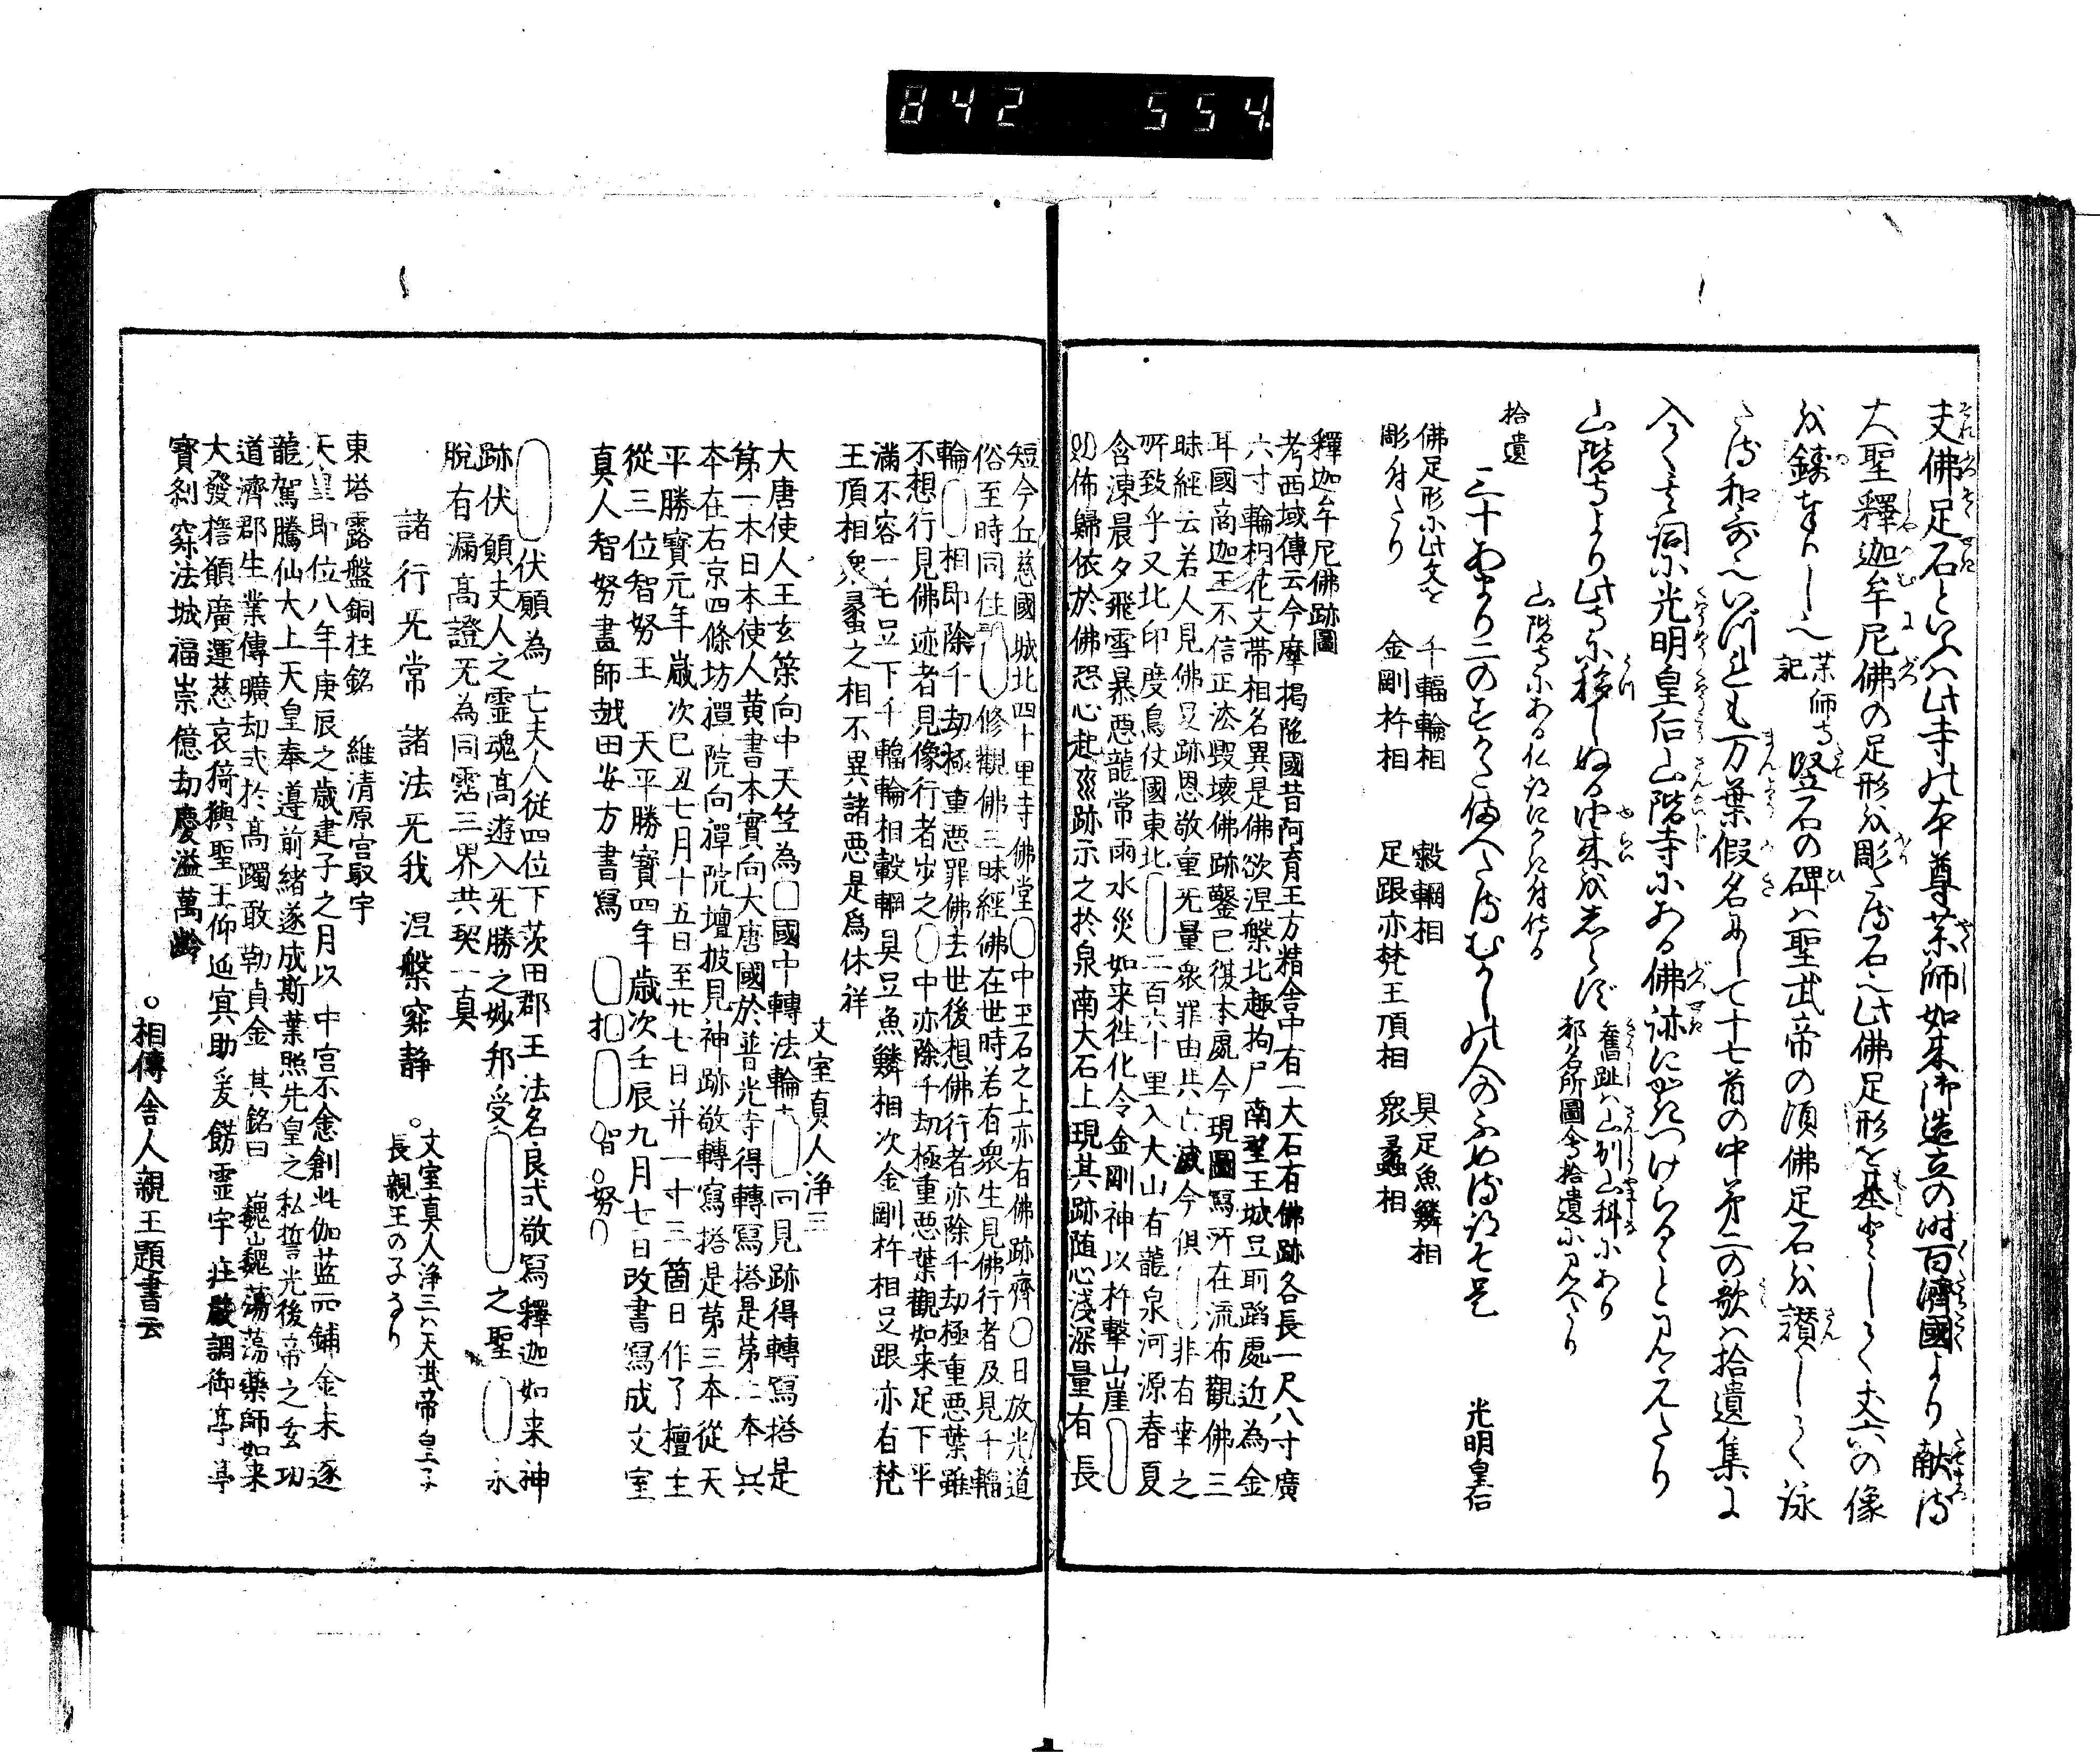 842 554
夫佛足石といふハ此寺の本尊薬師如来御造立の時百濟國より献る
大聖釋迦牟尼佛の足形を彫たる石也此佛足形を基としく丈六の像
を鑄奉りし也 薬師寺記 竪石の碑ハ聖武帝の頃佛足石を讃しく詠
たる和哥也いづれも万葉假名にして十七首の中第二の歌ハ拾遺集に
入く其詞に光明皇后山階寺にある佛跡にかきつけらるゝと見えたり
山階寺より此寺に移しぬる由来をしらず 舊趾ハ山州山科にあり 都名所圖會拾遺に見へたり
山階寺にある仏跡にかき付侍る
拾遺
三十あまり二のすかた備へたるむかしの人のふめる跡そ是 光明皇后
佛足形に此文を 千輻輪相 轂輞相 具足魚鱗相
彫付たり 金剛杵相 足跟亦梵王頂相 衆蠡相
釋迦牟尼佛跡圖
考西域傳云今摩掲陁國昔阿育王方精舎中有一大石有佛跡各長一尺八寸廣
六寸輪相花文帯相名異是佛欲涅槃北趣拘尸南望王城足所蹈處近為金
耳國商迦王不信正法毀壊佛跡鑿已復本處今現圖寫所在流布觀佛三
昧經云若人見佛足跡恩敬重无量衆罪由共亡滅今俱□非有幸之
所致乎又北印度烏仗國東北□二百六十里入大山有龍泉河源春夏
含凍晨夕飛雪暴惡龍常雨水災如来徃化令金剛神以杵撃山崖□
則佈歸依於佛恐心起 跡示之於泉南大石上現其跡随心淺深量有長
短今丘慈國城北四十里寺佛堂□中玉石之上亦有佛跡齊□日放光道
俗至時同住 □修觀佛三昧經佛在世時若有衆生見佛行者及見千輻
輪□相即除千劫極重悪罪佛去世後想佛行者亦除千劫極重悪葉雖
不想行見佛迹者見像行者歩之□中亦除千劫極重悪葉觀如来足下平
満不容一毛足下千輻輪相轂輞具足魚鱗相次金剛杵相足跟亦有梵
王頂相衆蠡之相不異諸悪是爲休祥
文室真人浄三
大唐使人王玄策向中天竺為□國中轉法輪 □同見跡得轉寫搭是
第一本日本使人黄書本實向大唐國於普光寺得轉寫搭是第二本此
本在右京四條坊禪院向禪院壇披見神跡敬轉寫搭是第三本從天
平勝寳元年歳次己丑七月十五日至廿七日并一十三箇日作了檀主
從三位智努王 天平勝寳四年歳次壬辰九月七日改書寫成文室
真人智努畫師越田安方書寫 □□□智□努□
□伏願為 亡夫人従四位下茨田郡王法名良式敬寫釋迦如来神
跡伏願夫人之霊魂髙遊入无勝之妙邦受□之聖□永
脱有漏髙證无為同霑三界共契一真
諸行无常 諸法无我 涅槃寂静 ○文室真人浄三ハ天武帝皇子 長親王の子なり
東塔露盤銅柱銘 維清原宮馭宇
天皇即位八年庚辰之歳建子之月以 中宮不悆創此伽藍而鋪金未遂
龍駕騰仙大上天皇奉遵前緒遂成斯業照先皇之私誓光後帝之玄功
道濟郡生業傳曠劫式於髙躅敢勒貞金 其銘曰 巍巍蕩蕩藥師如来
大發誓願廣運慈哀猗輿聖王仰延冥助爰餝霊宇荘嚴調御亭亭
寳刹寂寂法城福崇億劫慶溢萬齢
○相傳舎人親王題書云